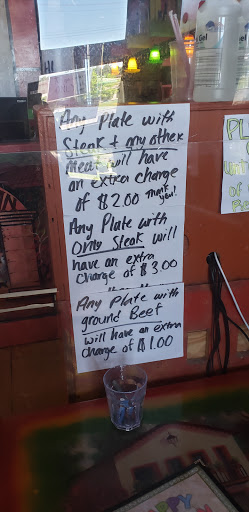 Any Plate with
Steak + any other
Meat will have
an extra charge
of $2.00 Thank you!
Any Plate with
Only Steak will
have an extra
charge of $3.00
Any Plate with
ground Beef
will have an extra
charge of $1.00
Gel